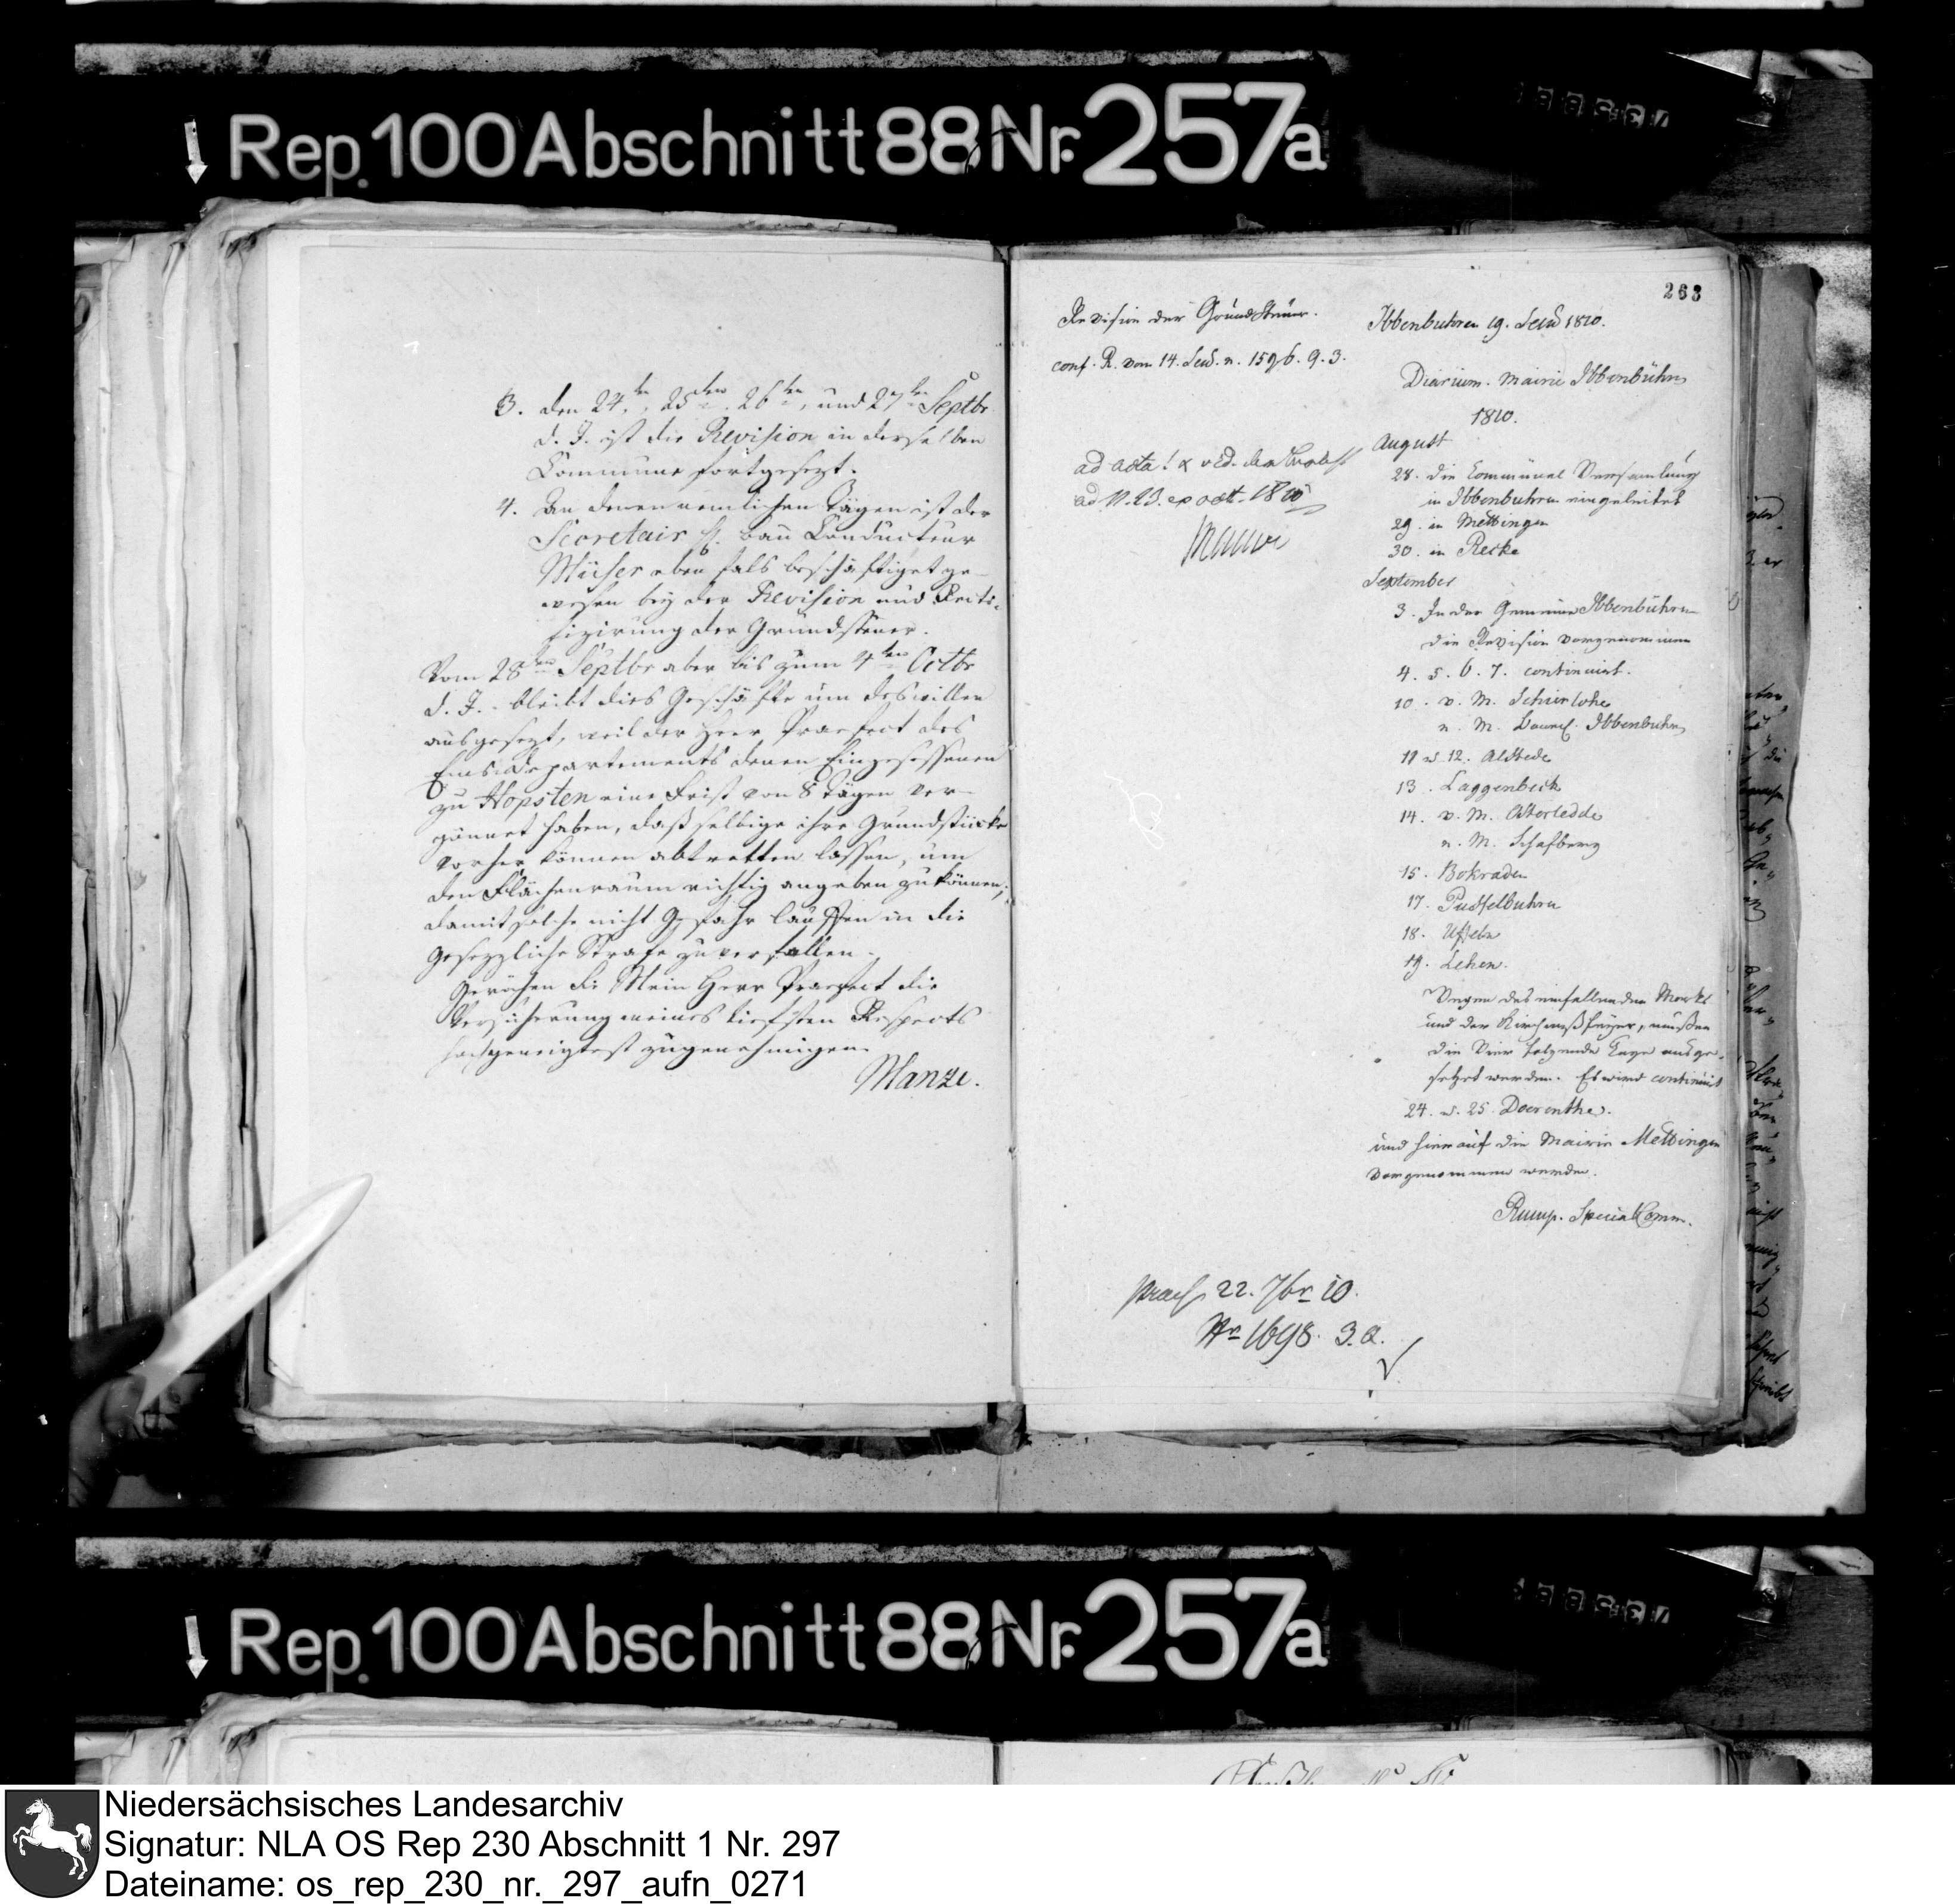 Rep. 100 Abschnitt 88 Nr. 257a
3. den 24ten, 25ten, 26ten, und 27ten Septbr
d. J. ist die Revision in derselben
Commune fortgesezt.
4. An denen nemlichen Tägen ist der
Secretair H. Bau Conducteur
Müser eben fals beschäftiget ge-
wesen bey der Revision und Recti-
fizirung der Grundsteuer.
Vom 28ten Septbr aber bis zum 4ten Octbr
d. J. bleibt dies Geschäfte um deswillen
ausgesezt, weil der Herr Praefect des
Emsdepartements denen Eingesessenen
zu Hopsten eine Frist von 8 Tägen ver-
gönnet haben, daß selbige ihre Grundstücke
vorher können abtretten lassen, um
den Flächenraum richtig angeben zu können;
damit solche nicht Gefahr lauffen in die
gesezzliche Strafe zu verfallen.
Geruhen Sie Mein Herr Praefect die
Versicherung meines tiefsten Respects
hochgeneigtest zu genehmigen.
Manze.
263
Revision der Grundsteuer.
conf. R. vom 14. n. 1596. 9. 3.
ad acta!
ad N. 23. ex oct. 1810
Ibbenbuhren 19. 1810.
Diarium. Mairie Ibbenbühren
1810.
August
28. die Communal Versamlung
in Ibbenbuhren eingeleitet
29. in Mettingen
30. in Recke
September
3. In der Gemeine Ibbenbühren
die Revision vorgenommen
4. 5. 6. 7. continuirt.
10. v. M. Schierlohe
n. M. Ibbenbuhren
11 u. 12. Alstede
13. Laggenbeck
14. v. M. Osterledde
n. M. Schafberg
15. Bokraden
17. Pusselbuhren
18. Uffeln
19. Lehen.
Wegen des einfallenden Markts
und der Kirchmeßfeyer, müßen
die vier folgende Tage ausge-
setzet werden. Es wird continuirt
24. u. 25. Doerenthe.
und hierauf die Mairie Mettingen
vorgenommen werden.
Rump. Special Comm.
praes. 22. 7br 10.
Nr 1698. 3. a.
Rep. 100 Abschnitt 88 Nr. 257a
Niedersächsisches Landesarchiv
Signatur: NLA OS Rep 230 Abschnitt 1 Nr. 297
Dateiname: os_rep_230_nr._297_aufn_0271